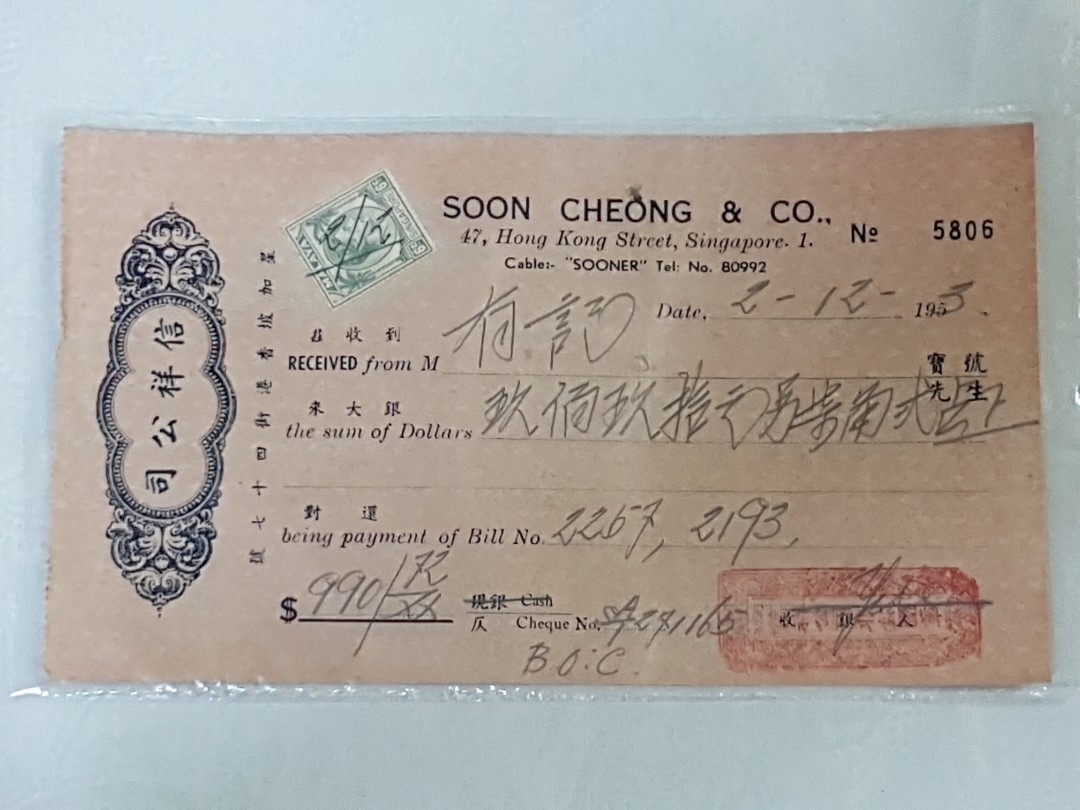 SOON CHEONG & CO.,
47, Hong Kong Street, Singapore. 1.
Nº 5806
Cable:- "SOONER" Tel: No. 80992
信祥公司
星加坡香港街四十七號
SINGAPORE
MALAYA
2/12
Date, 2-12-1953.
茲收到
RECEIVED from M 有記
寶號
先生
來大銀
the sum of Dollars 玖佰玖拾元另柒角弍占
對還
being payment of Bill No. 2267, 2193.
$ 990/72
現銀 Cash
仄 Cheque No. 271165
B.O.C.
收銀人